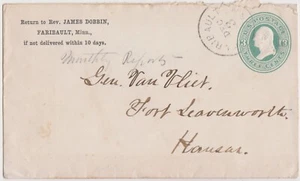 Return to Rev. JAMES DOBBIN,
FARIBAULT, Minn.,
if not delivered within 10 days.
FARIBAULT
U.S. POSTAGE
THREE CENTS
Monthly Reports
Gen. Van Vliet.
Fort Leavenworth.
Kansas.